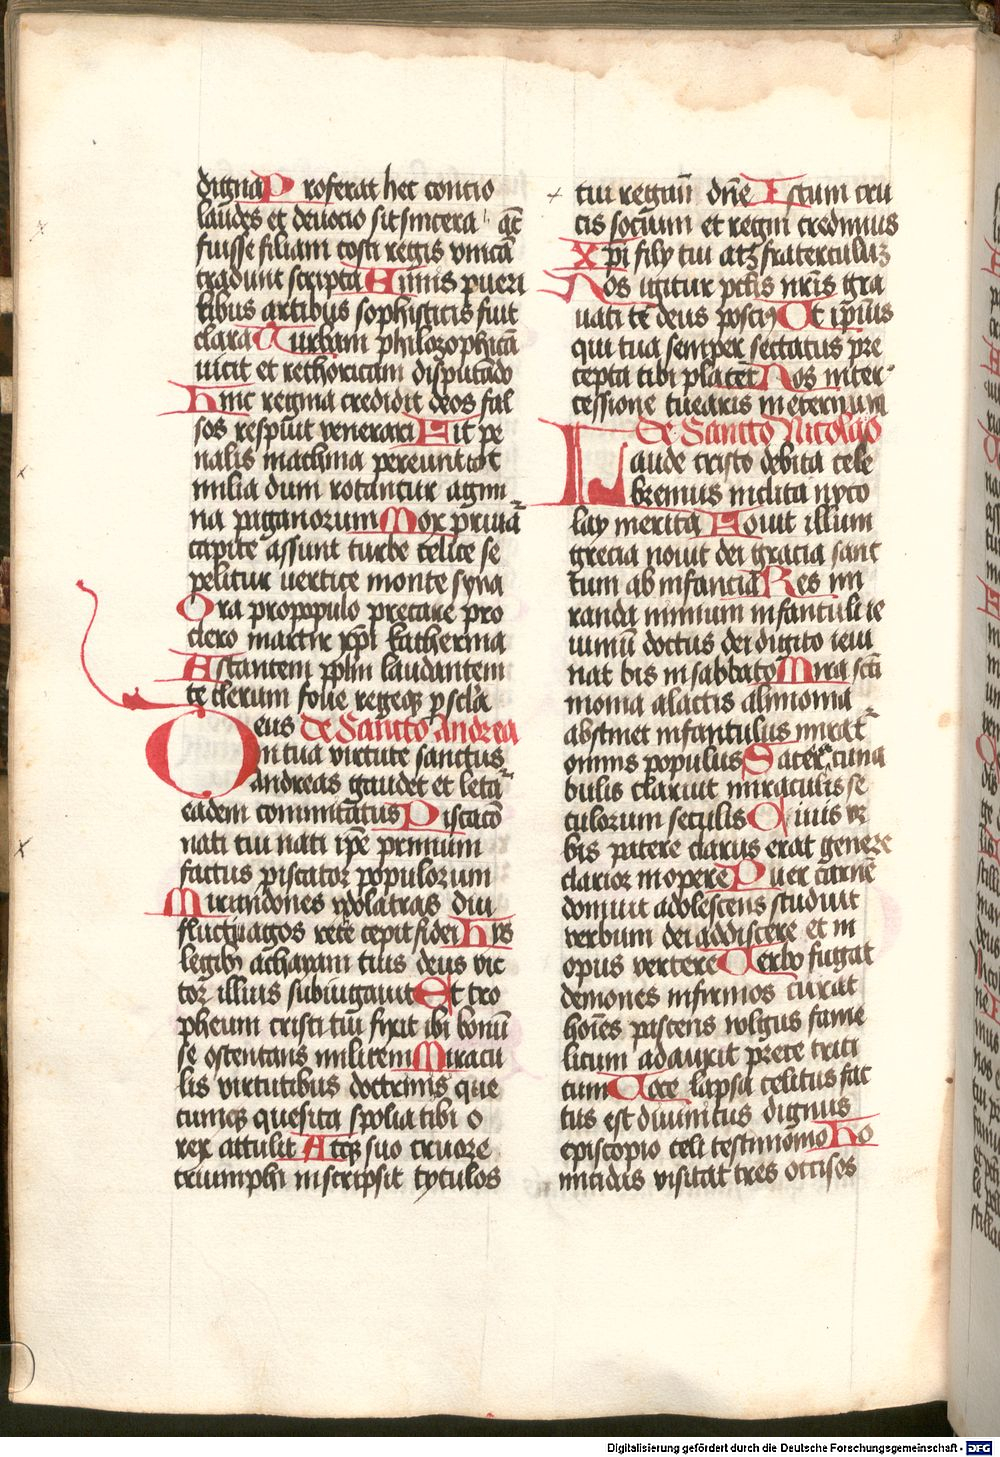 digna Proferat hec contio
laudes et deuocio sit sincera qͣꝫ
fuisse filiam costi regis vnicā
tradunt scripta Annis pueri
libus artibus sophisticis fuit
clara Turbam philozophicā
uicit et rethoricam disputādo
Hinc regina credidit deos fal
sos respuit venerari Fit pe
nalis machina pereunt tot
milia dum rotantur agmi
na paganorum Mox priuā
capite assunt turbe celice se
pelitur uertice monte syna
Ora pro populo precare pro
clero martir xp̄i katherina
Astantem pplm laudantem
te clerum foue regeqꝫ p scl̄a
Deus de Sancto Andrea
in tua virtute sanctus
Andreas gaudet et leta
eadem commitātus Piscacō
nati tui nati ip̄e primum
factus piscator populorum
Mirandones ydolatras diu
fluctiuagos rete cepit fidei Hys
legibꝫ achayam tuis deus vic
tor illius subiugauit Et tro
pheum cristi tui fixit ibi bonū
se ostentans militem Miracu
lis virtutibus doctrinis que
cumqꝫ quesita spolia tibi o
rex attulit Atqꝫ suo cruore
triumphi inscripsit tytulos
tui regnū dn̄e Istum cru
cis socium et regni credimus
Xp̄i filÿ tui atqꝫ fraterculuꝫ
Nos igitur pctīs nr̄is gra
uati te deus poscimꝰ Ut ip̄ius
qui tua semper sectatus pre
cepta tibi placet Nos inter
cessione tuearis in eternum
De Sancto Nicolao
Laude cristo debita cele
bremus inclita nyco
lay merita Fouit illum
grecia nouit dei gracia sanc
tum ab infancia Res mi
randa nimium infantuli ie
iuniū doctus dei digito ieiu
nat bis in sabbato Mira scī
monia a lactis alimonia
abstinet infantulus mirat᷑
omnis populus Sacer cuna
bulis claruit miraculis se
culorum seculis Ciuis vr
bis patere clarus erat genere
clarior in opere Puer carnē
domuit adolescens studuit
verbum dei addiscere et in
opus vertere Verbo fugat
demones infirmos curat
hoīes pascens volgus fame
licum adauxit prece triti
cum Voce lapsa celitus fac
tus est diuinitus dignus
episcopio celi testimonio Ho
micidas visitat tres occisos
Digitalisierung gefördert durch die Deutsche Forschungsgemeinschaft - DFG